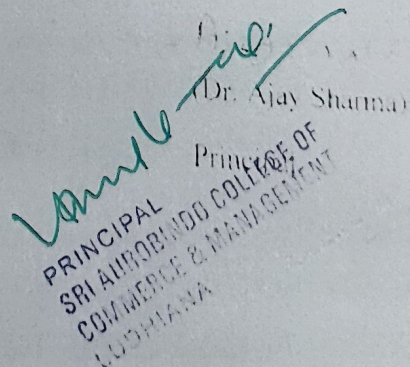 (Dr. Ajay Sharma)
Principal
PRINCIPAL
SRI AUROBINDO COLLEGE OF
COMMERCE & MANAGEMENT
LUDHIANA